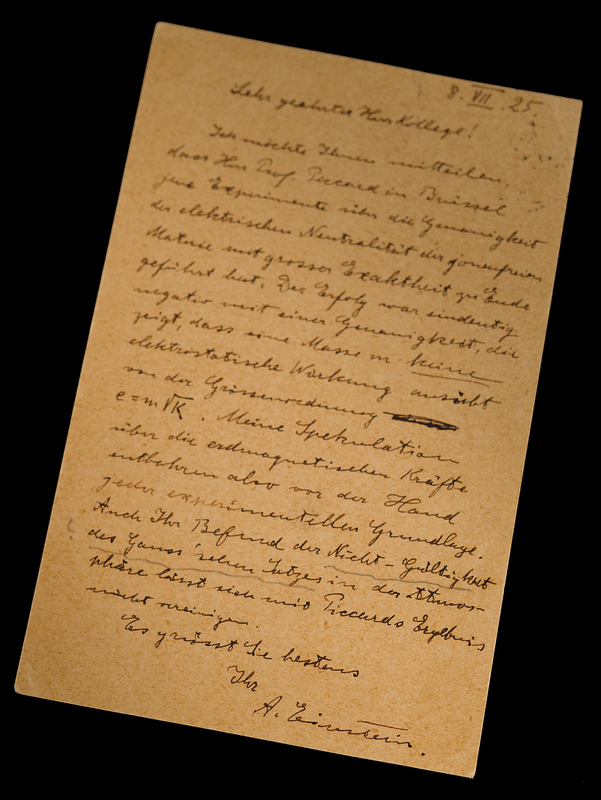 8. VII. 25.
Sehr geehrter Herr Kollege!
Ich möchte Ihnen mitteilen,
dass Herr Prof. Piccard in Brüssel
jene Experimente über die Genauigkeit
der elektrischen Neutralität der jonenfreien
Materie mit grosser Exaktheit zu Ende
geführt hat. Der Erfolg war eindeutig
negativ mit einer Genauigkeit, die
zeigt, dass eine Masse m keine
elektrostatische Wirkung ausübt
von der Grössenordnung
e = m √K. Meine Spekulation
über die erdmagnetischen Kräfte
entbehren also vor der Hand
jeder experimentellen Grundlage.
Auch Ihr Befund der Nicht-Gültigkeit
des Gauss'schen Satzes in der Atmos-
phäre lässt sich mit Piccards Ergebnis
nicht vereinigen.
Es grüsst Sie bestens
Ihr
A. Einstein.